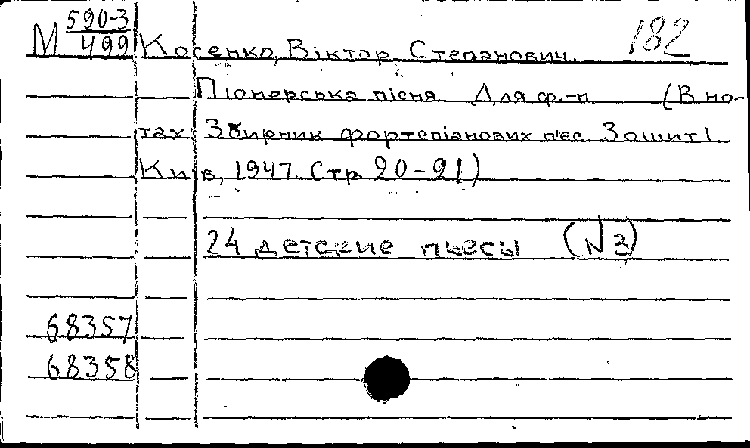 М 590-3/499 Косенко, Віктор Степанович 182
Піонерська пісня Для ф.-п. (В но-
тах: Збирник фортепіанових п'єс. Зошит I.
Київ, 1947. Стр. 20-21)
24 детские пьесы (№3)
68357
68358